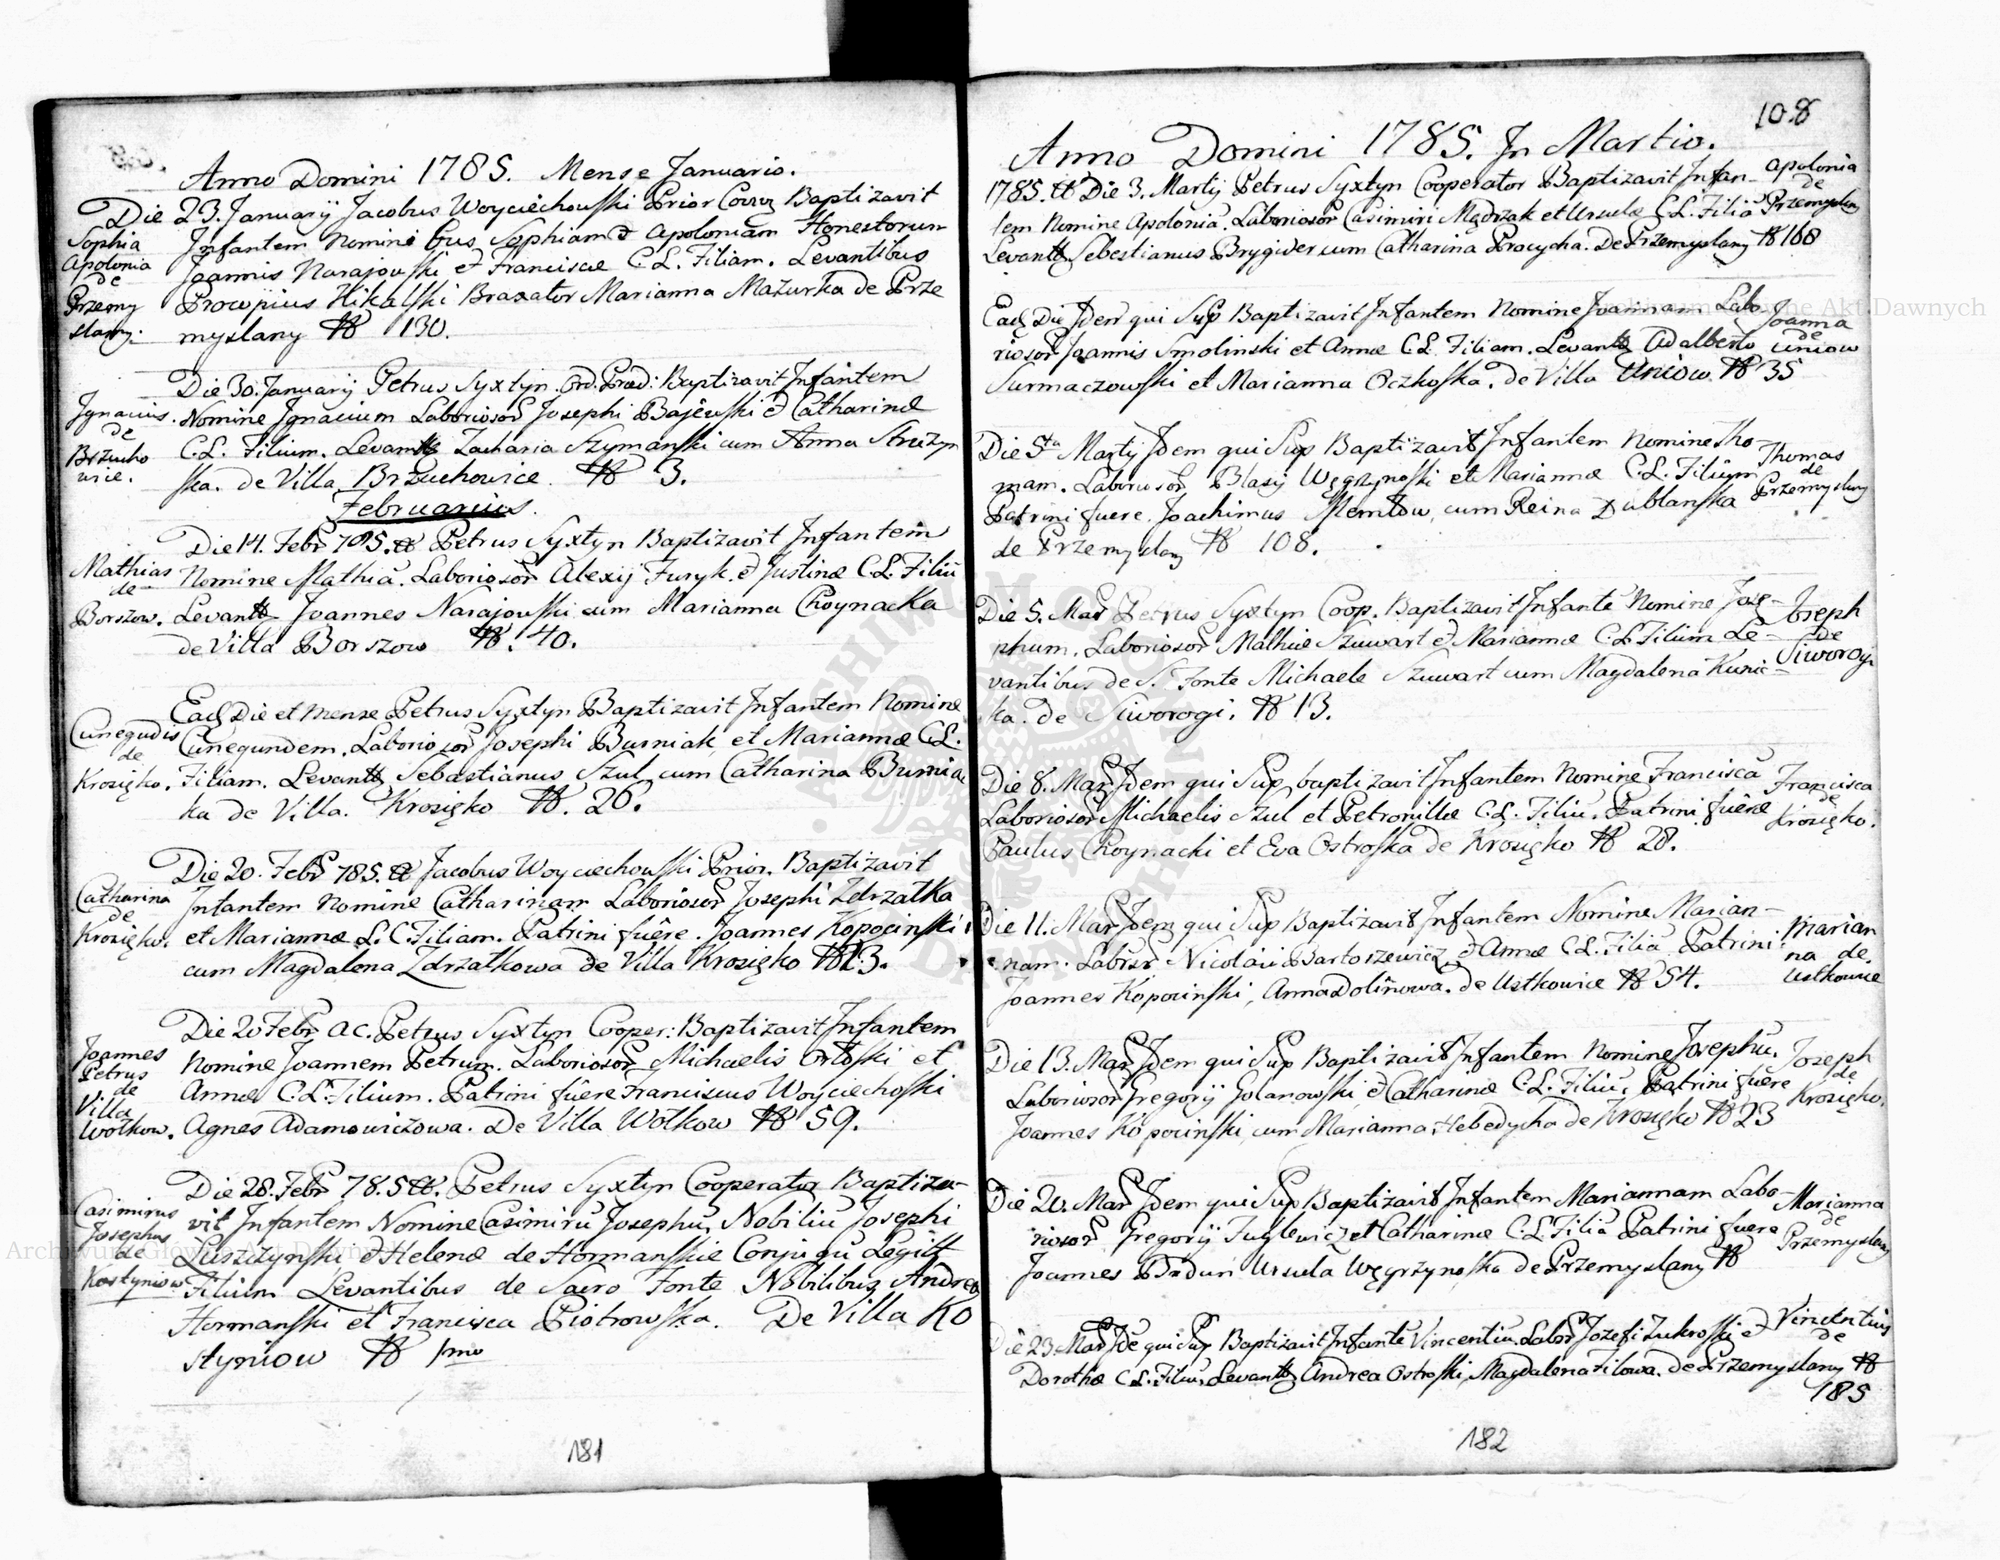 Anno Domini 1785. Mense Januario.
Die 23. Januarij Jacobus Woyciechowski Prior Baptizavit
Sophia Apolonia de Przemyslany.
Infantem nominibus Sophiam et Apoloniam Honestorum
Joannis Narajowski et Francisae C. L. Filiam. Levantibus
Procopius Hikalski Braxator Marianna Mazurka de Prze
myslany № 130.
Ignacius de Brzucho wice.
Die 30. Januarij Petrus Syxtyn. Ord. Præd: Baptizavit Infantem
Nomine Ignacium Laboriosor Josephi Bajewski et Catharinæ
C. L. Filium. Levantt Zacharia Szymanski cum Anna Struzyn
ska. de Villa Brzuchowice № 3.
Februarius.
Mathias de Borszow.
Die 14. Febr 785. Petrus Syxtyn Baptizavit Infantem
Nomine Mathiã. Laboriosor Alexij Furyk. et Justinæ C. L. Filiũ
Levantt Joannes Narajowski cum Marianna Choynacka
de Villa Borszow № 40.
Cunegudis de Krosięko.
Ead Die et mense Petrus Syxtyn Baptizavit Infantem Nomine
Cunegundem. Laboriosor Josephi Burniak et Mariannæ C. L.
Filiam. Levantt Sebastianus Szul cum Catharina Burnia
ka de Villa. Krosięko № 26.
Catharina de Krosięko.
Die 20. Febr 785. Jacobus Woyciechowski Prior. Baptizavit
Infantem Nomine Catharinam Laboriosor Josephi Zdrzałka
et Mariannæ L. C. Filiam. Patrini fuêre. Joannes Kopocinski
cum Magdalena Zdrzałkowa de Villa Krosięko № 23.
Joannes Petrus de Villa Wołkow.
Die 20 Febr ac. Petrus Syxtyn Cooper: Baptizavit Infantem
Nomine Joannem Petrum. Laboriosor Michaelis Orłoski et
Annæ C. L. Filium. Patrini fuêre Franciscus Woyciechoski
Agnes Adamowiczowa. De Villa Wołkow № 59.
Casimirus Josephus de Kostyniow
Die 28. Febr 785. Petrus Syxtyn Cooperator Baptiza-
vit Infantem Nomine Casimirũ Josephũ, Nobiliũ Josephi
Luszczynski et Helenæ de Hormanskie Conjugũ Legitt
Filium Levantibus de Sacro Fonte Nobilibus Andrea
Hormanski et Francisca Piotrowska. De Villa Ko
styniow № 1mo
181
108
Anno Domini 1785. In Martio.
1785. Die 3. Martij Petrus Syxtyn Cooperator Baptizavit Infan-
tem Nomine Apolonia. Laboriosor Casimiri Mędrzak et Ursulæ C. L. Filiã
Levantt Sebestianus Brygider cum Catharina Procycha. De Przemyslany № 168
Apolonia de Przemyslany
Ead Die Idem qui Sup Baptizavit Infantem Nomine Joannam Labo-
riosor Joannis Smolinski et Annæ C. L. Filiam. Levantt Adalberto
Surmaczowski et Marianna Oczkoska. de Villa Uniow № 35
Joanna de Uniow
Die 5ta Martij Idem qui Sup Baptizavit Infantem Nomine Tho
mam. Laboriosor Blasij Węgrzynoski et Mariannæ C. L. Filium
Patrini fuere. Joachimus Memlow, cum Reina Dublanska
de Przemyslany № 108.
Thomas de Przemyslany
Die 5. Mar Petrus Syxtyn Coop. Baptizavit Infantẽ Nomine Jose-
phum. Laboriosor Mathiæ Szuwart et Mariannæ C. L. Filium Le-
vantibus de S. Fonte Michaele Szuwart cum Magdalena Kunic-
ka. de Siworogi. № 13.
Joseph de Siworogi.
Die 8. Mar Idem qui Sup baptizavit Infantem Nomine Franciscã
Laboriosor Michaelis Szul et Petronillæ C. L. Filiã. Patrini fuêre
Paulus Choynacki et Eva Ostroska de Krosięko № 28.
Francisca de Krosięko.
Die 11. Mar Idem qui Sup Baptizavit Infantem Nomine Marian-
nam. Labrsr Nicolai Bartoszewicz et Annæ C. L. Filiã Patrini
Joannes Kopocinski, Anna Dolinowa. de Ustkowice № 54.
Marian na de. Ustkowice
Die 13. Mar Idem qui Sup Baptizavit Infantem Nomine Josephũ.
Laboriosor Gregorij Golanowski, et Catharinæ C. L. Filiũ. Patrini fuêre
Joannes Kopocinski, cum Marianna Hebedycha de Krosięko № 23
Joseph de Krosięko.
Die 20. Mar Idem qui Sup Baptizavit Infantem Mariannam Labo-
riosor Gregorij Juglewicz et Catharinæ C. L. Filiã Patrini fuere
Joannes Bodun Ursula Węgrzynoska de Przemyslany №
Marianna de Przemyslany
Die 23. Mar Idẽ qui Sup Baptizavit Infantẽ Vincentiũ. Labor Jozefi Zukroski et
Dorothæ C. L. Filiũ. Levantt Andrea Ostroski, Magdalena Filowa. de Przemyslany №
185
Vincentius de
182
Archiwum Główne Akt Dawnych
Archiwum Główne Akt Dawnych
ARCHIWUM GŁÓWNE AKT DAWNYCH